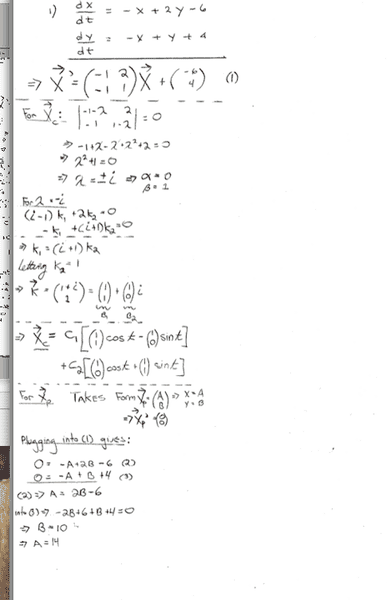 1) dx/dt = -x + 2y - 6
dy/dt = -x + y + 4
⇒ X⃗' = (-1 2; -1 1) X⃗ + (-6; 4) (1)
For X⃗c: |-1-λ 2; -1 1-λ| = 0
⇒ -1+λ-λ+λ²+2=0
⇒ λ²+1=0
⇒ λ = ±i ⇒ α=0
β=1
For λ=-i
(i-1)k₁+2k₂=0
-k₁+(i+1)k₂=0
⇒ k₁=(i+1)k₂
Letting k₂=1
⇒ K⃗ = (1+i; 1) = (1; 1) + (1; 0)i
B₁ B₂
⇒ X⃗c = C₁[(1; 1)cos t - (1; 0)sin t]
+C₂[(1; 0)cos t + (1; 1)sin t]
For X⃗p Takes Form X⃗p=(A; B) ⇒ x=A
y=B
⇒ X⃗p' = (0; 0)
Plugging into (1) gives:
0 = -A+2B-6 (2)
0 = -A+B+4 (3)
(2) ⇒ A = 2B-6
into (3) ⇒ -2B+6+B+4=0
⇒ B=10
⇒ A=14